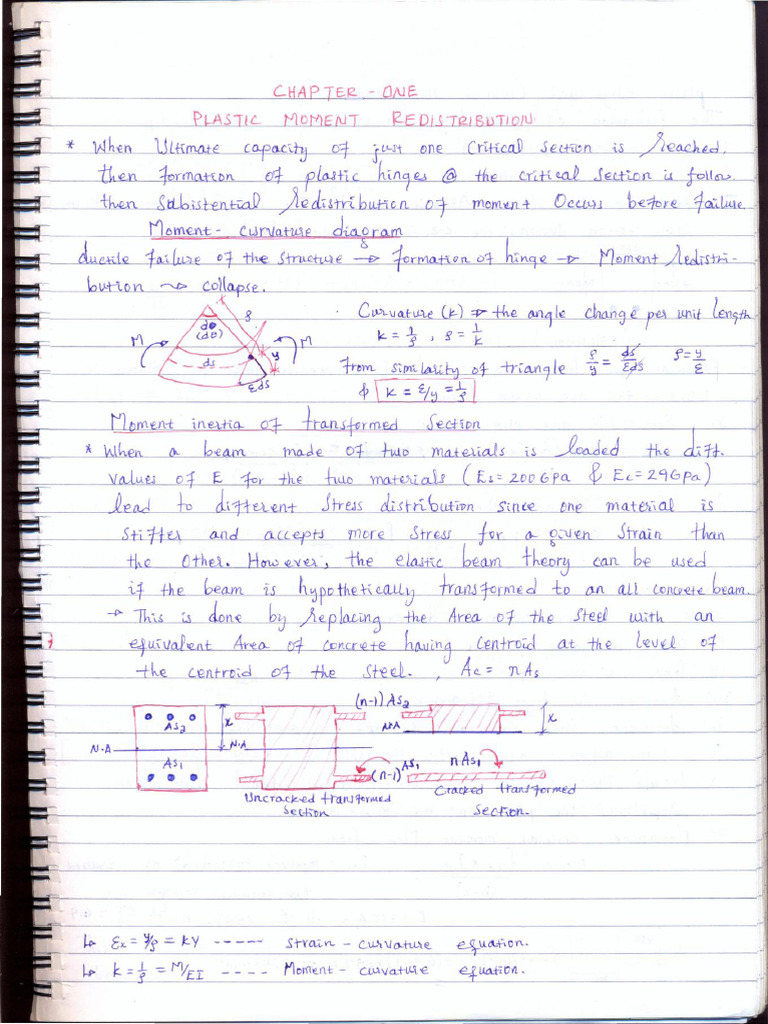 CHAPTER - ONE
PLASTIC MOMENT REDISTRIBUTION
* When Ultimate capacity of just one critical section is reached.
then formation of plastic hinges @ the critical section is follow.
then Subistential redistribution of moment Occurs before failure.
Moment - curvature diagram
ductile failure of the structure → formation of hinge → Moment redistri-
bution ⇝ collapse.
Curvature (k) ⇒ the angle change per unit length
k = 1/ρ , ρ = 1/k
from similarity of triangle ρ/y = ds/εds ρ = y/ε
& k = ε/y = 1/ρ
dθ
(dθ)
ρ
M
M
ds
y
εds
Moment inertia of transformed section
* When a beam made of two materials is loaded the diff.
values of E for the two materials (Es = 200Gpa & Ec = 29Gpa)
lead to different stress distribution since one material is
stiffer and accepts more stress for a given strain than
the other. However, the elastic beam theory can be used
if the beam is hypothetically transformed to an all concrete beam.
→ This is done by replacing the Area of the steel with an
equivalent Area of concrete having centroid at the level of
the centroid of the steel. , Ac = nAs
AS2
x
(n-1) AS2
N.A
x
N.A
N.A
AS1
(n-1) AS1
nAs1
Uncracked transformed
section
Cracked transformed
section.
↳ εx = y/ρ = KY ----- Strain - curvature equation.
↳ k = 1/ρ = M/EI ---- Moment - curvature equation.